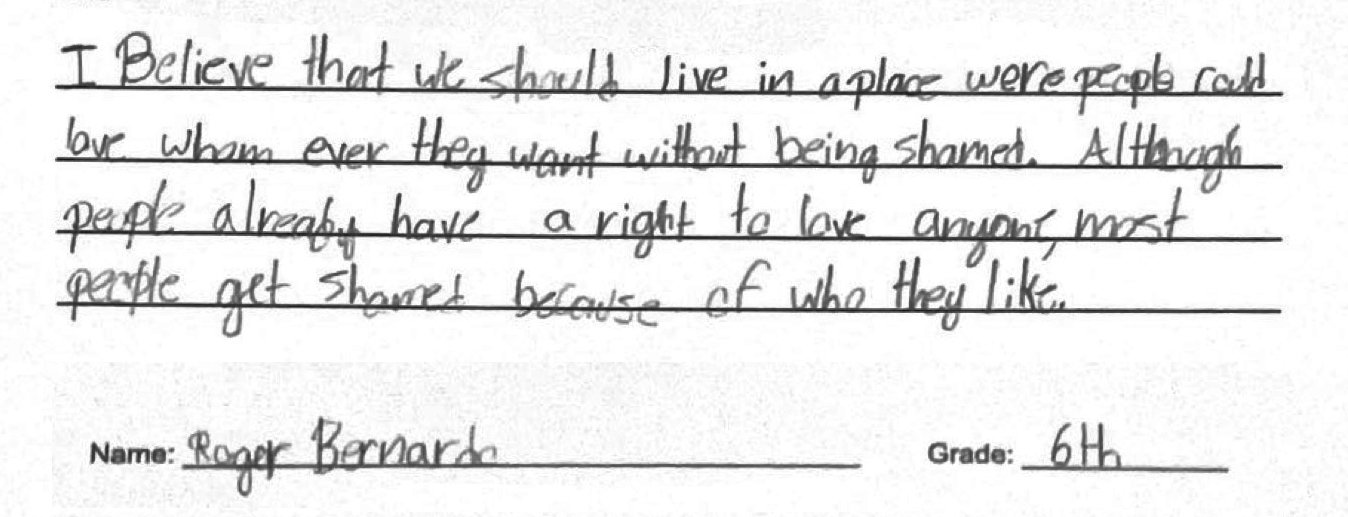 I Believe that we should live in a place were people could
love whom ever they want without being shamed. Although
people already have a right to love anyone, most
people get shamed because of who they like.
Name: Roger Bernardo
Grade: 6th